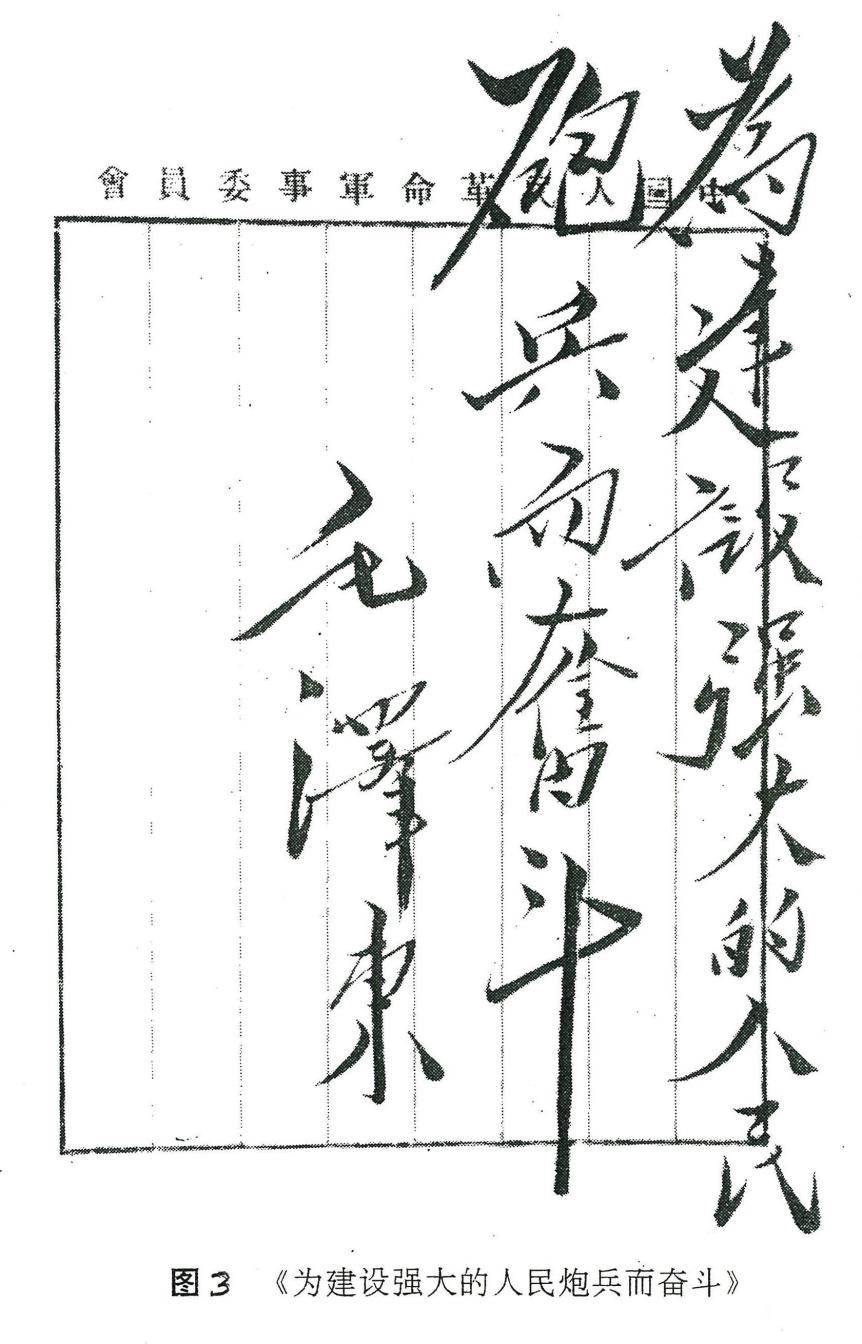 中国人民革命軍事委員會
為建設强大的人民
砲兵而奮斗
毛澤東
图3 《为建设强大的人民炮兵而奋斗》